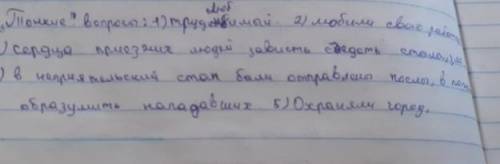 „Тонкие" вопросы: 1) трудолюбимой 2) любили свою работу
) сердца приезжих людей зависть
) в неприятельский стан были отправлены послы, в
образумить нападавших 5) Охраняли город.